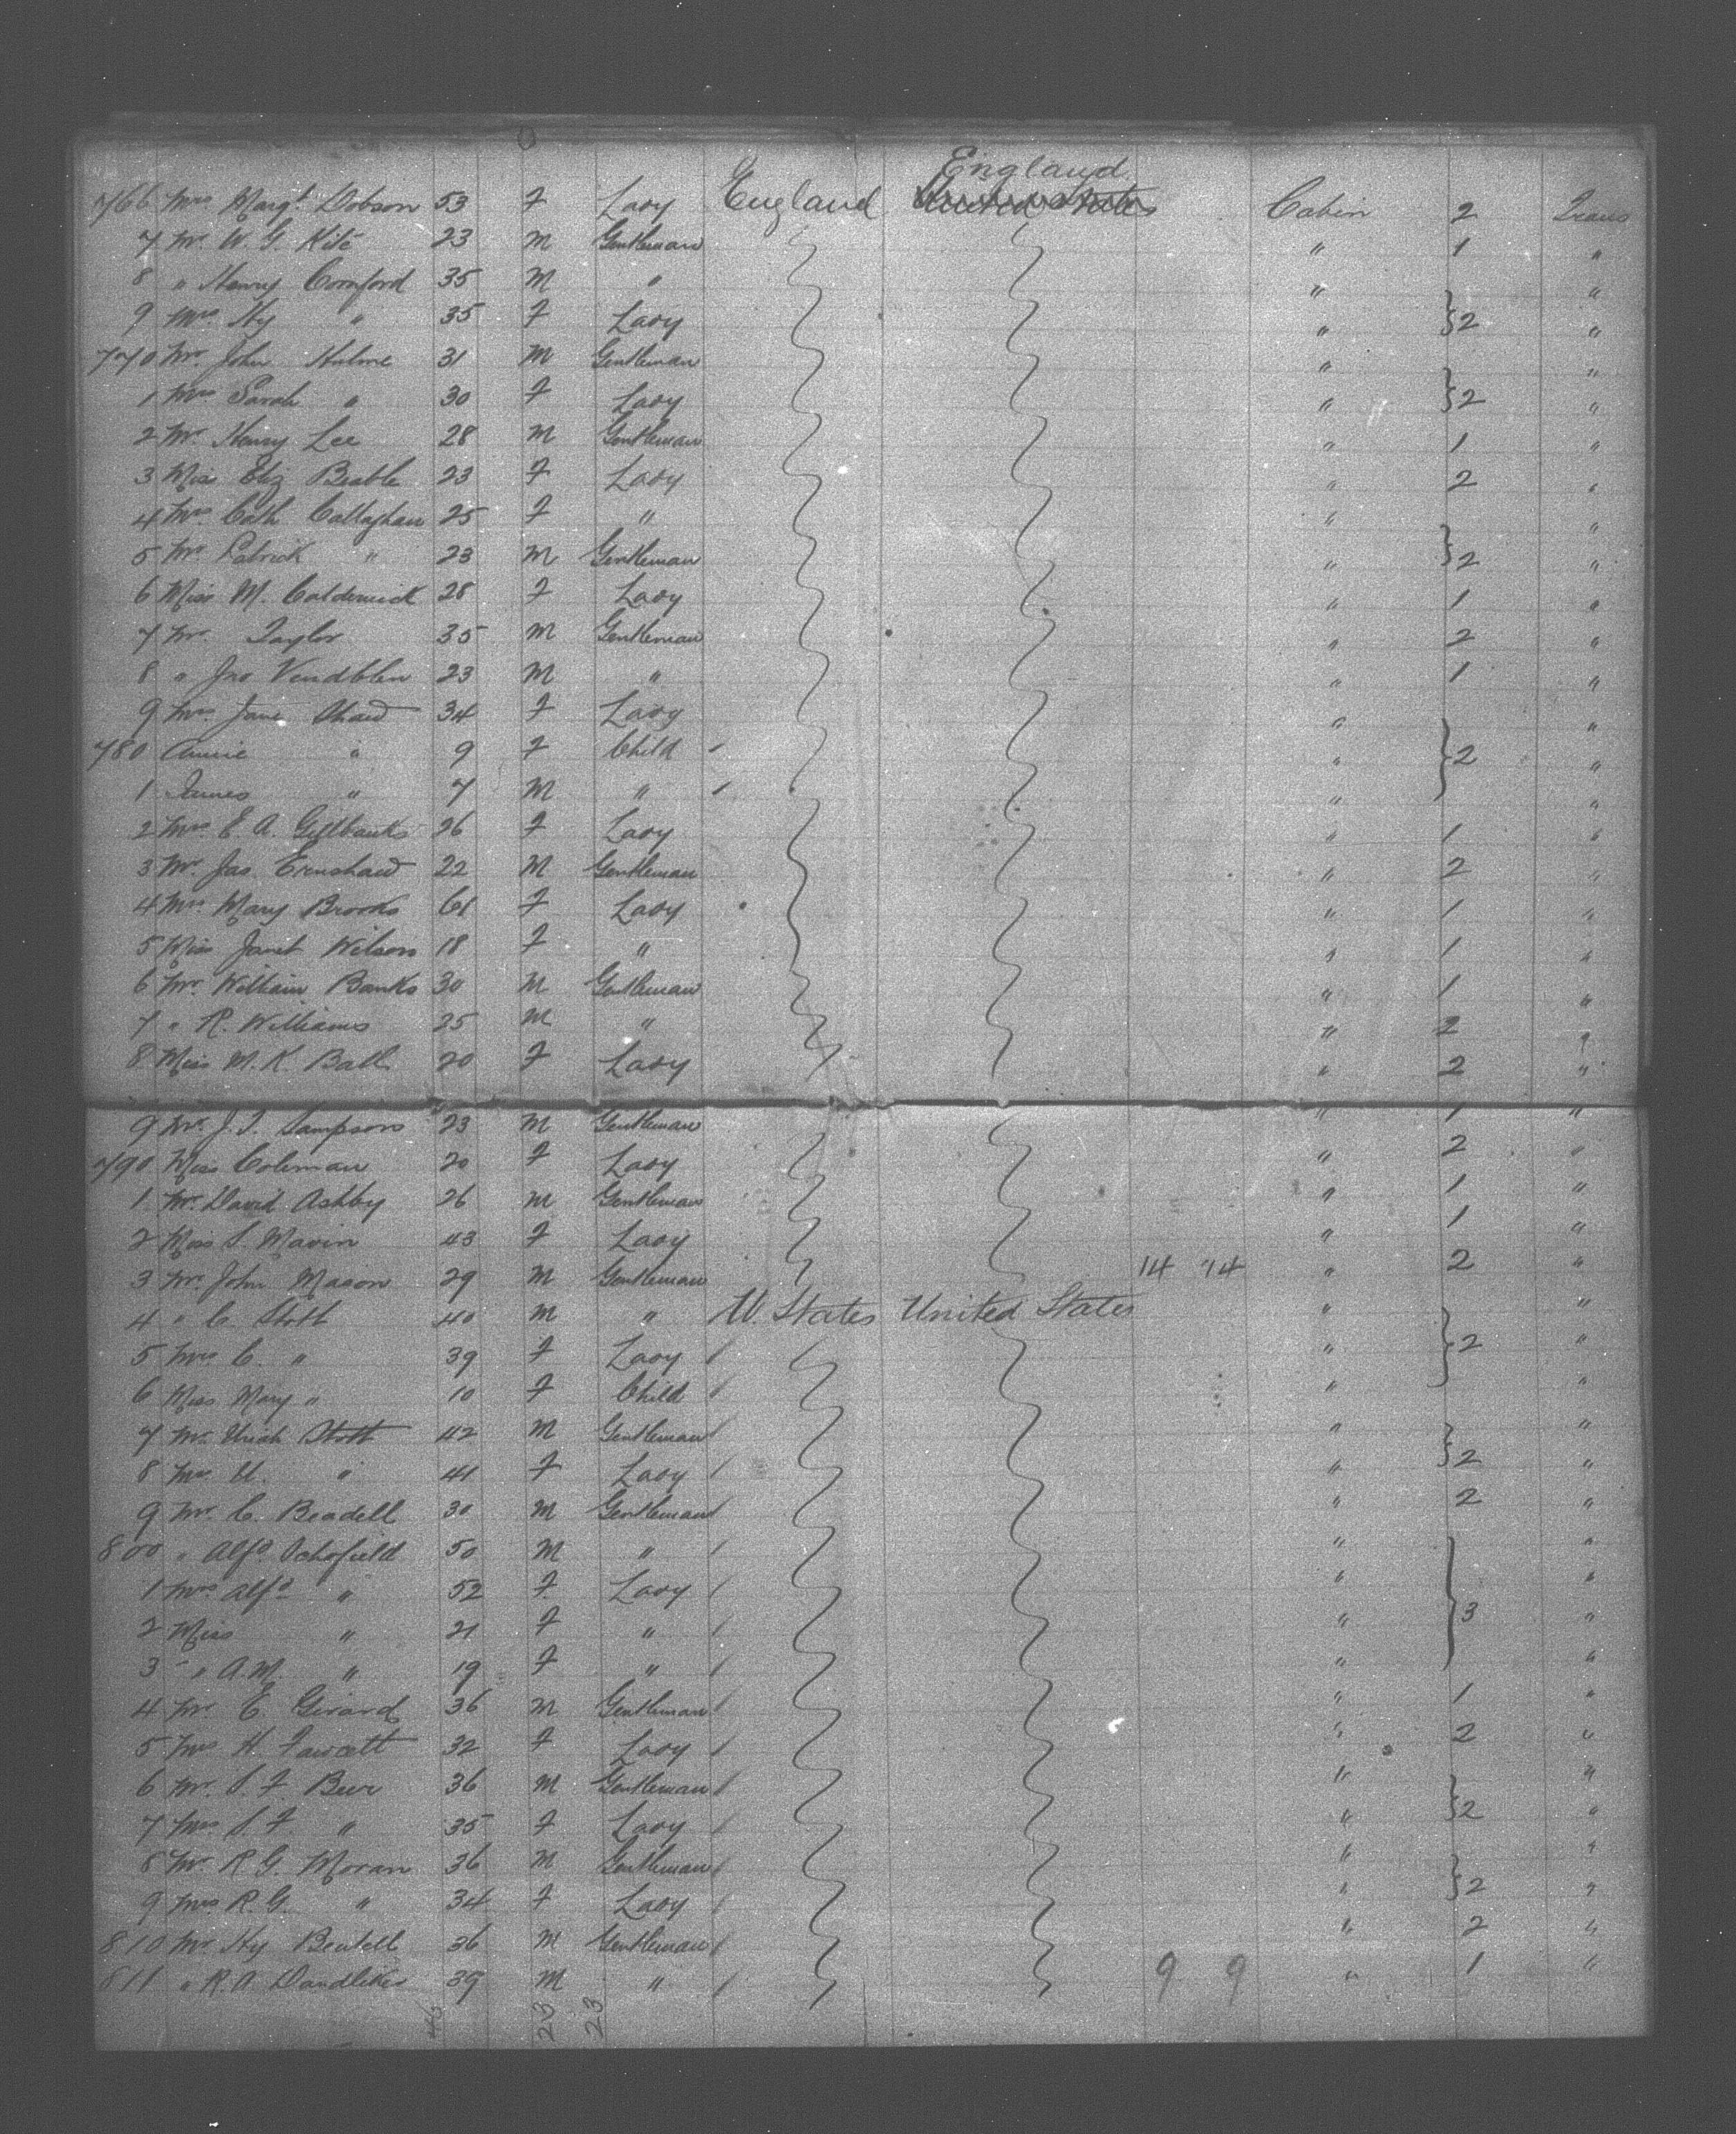 England
766 Mrs Margt. Dobson 53 F Lady England United States Cabin 2 Trans
7 Mr. W. G. Kite 23 M Gentleman " 1 "
8 " Henry Cornford 35 M " " "
9 Mrs Hy " 35 F Lady " }2 "
770 Mr. John Hulme 31 M Gentleman " "
1 Mrs Sarah " 30 F Lady " }2 "
2 Mr. Henry Lee 28 M Gentleman " 1 "
3 Miss Eliz Beable 23 F Lady " 2 "
4 Mrs. Cath Callaghan 25 F " " "
5 Mr Patrick " 23 M Gentleman " }2 "
6 Miss M. Calderwick 28 F Lady " 1 "
7 Mr. Taylor 35 M Gentleman " 2 "
8 " Jno Vendblen 23 M " " 1 "
9 Mrs. Jane Shaw 34 F Lady " "
780 Annie " 9 F Child " }2 "
1 James " 7 M " " "
2 Mrs E. A. Gillbanks 26 F Lady " 1 "
3 Mr. Jas. Ernshaw 22 M Gentleman " 2 "
4 Mrs Mary Brooks 61 F Lady " 1 "
5 Miss Janet Wilson 18 F " " 1 "
6 Mr. William Banks 30 M Gentleman " 1 "
7 " R. Williams 25 M " " 2 "
8 Miss M. K. Ball 20 F Lady " 2 "
9 Mr. J. T. Sampson 23 M Gentleman " 1 "
790 Miss Coleman 20 F Lady " 2 "
1 Mr. David Ashby 26 M Gentleman " 1 "
2 Miss S. Mavin 43 F Lady " 1 "
3 Mr. John Mason 29 M Gentleman 14 74 " 2 "
4 " C. Stott 40 M " U. States United States " "
5 Mrs C. " 39 F Lady " }2 "
6 Miss Mary " 10 F Child " "
7 Mr. Uriah Stott 42 M Gentleman " "
8 Mrs. U. " 41 F Lady " }2 "
9 Mr. C. Beadell 30 M Gentleman " 2 "
800 " Alfd Schofield 50 M " " "
1 Mrs Alfd " 52 F Lady " "
2 Miss " 21 F " " }3 "
3 " A.M. " 19 F " " "
4 Mr E. Girard 36 M Gentleman " 1 "
5 Mrs H. Fawcett 32 F Lady " 2 "
6 Mr. S. F. Beer 36 M Gentleman " "
7 Mrs S. F " 35 F Lady " }2 "
8 Mr. R G. Moran 36 M Gentleman " "
9 Mrs R. G. " 34 F Lady " }2 "
810 Mr Hy Bentell 36 M Gentleman " 2 "
811 " R. A. Dandliker 39 M " 9 9 " 1 "
46 23 23